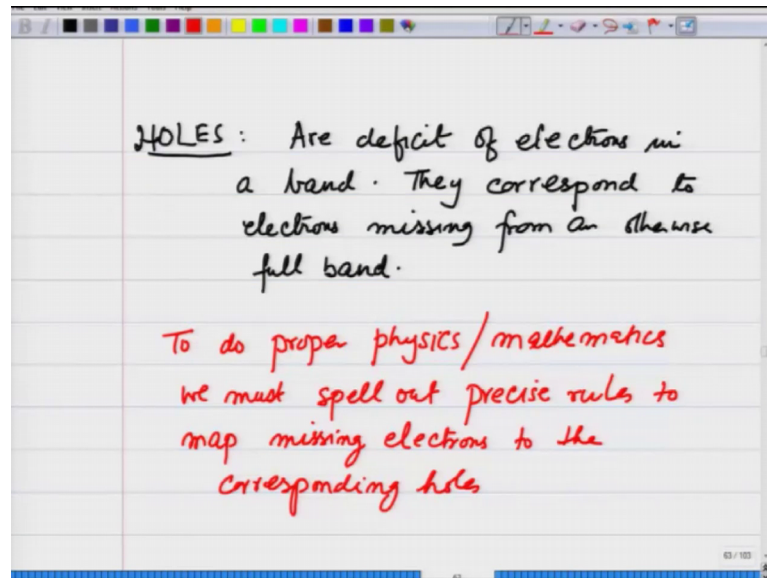 HOLES : Are deficit of electrons in
a band. They correspond to
electrons missing from an otherwise
full band.
To do proper physics/mathematics
we must spell out precise rules to
map missing electrons to the
corresponding holes
63 / 103